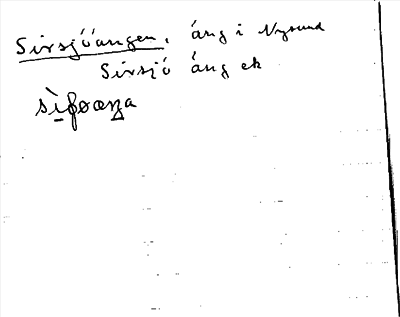 Sirsjöängen, äng i Nysund
Sirsjö äng ek